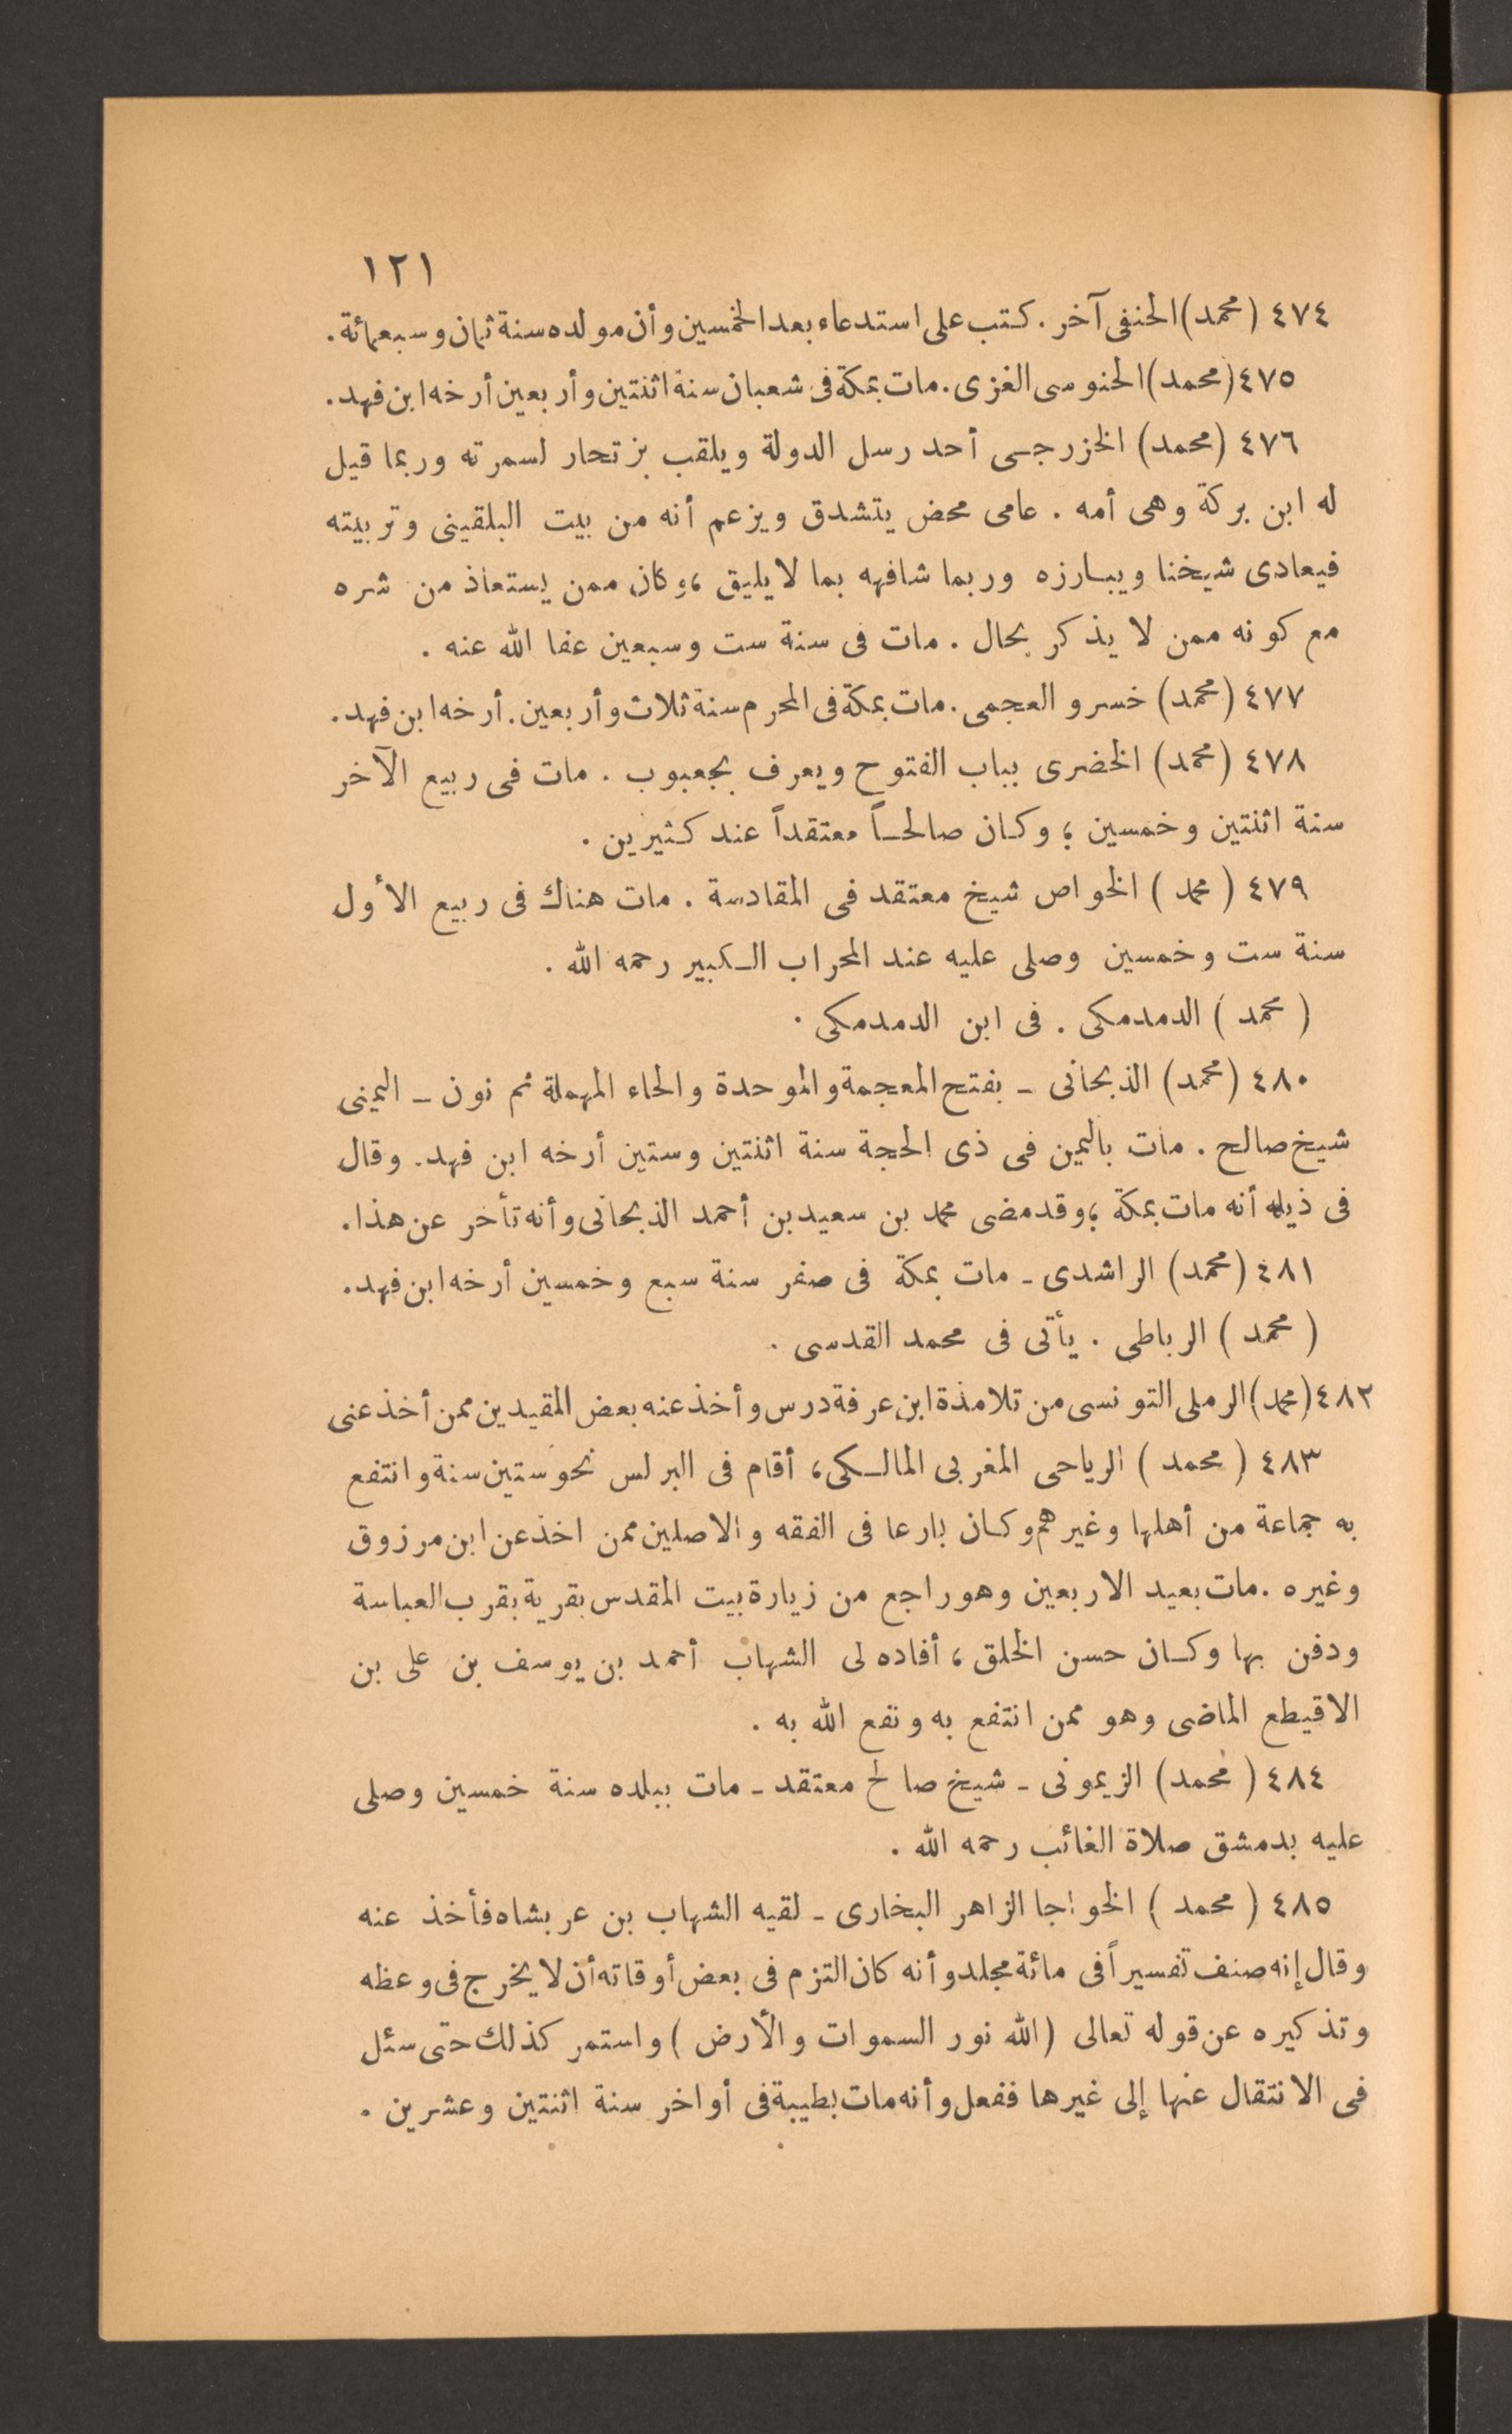 ١٢١
٤٧٤ (محمد) الحنفى آخر . كتب على استدعاء بعد الخمسين وأن مولده سنة ثمان وسبعمائة .
٤٧٥ (محمد) الحنوسى الغزى . مات بمكة فى شعبان سنة اثنتين وأربعين أرخه ابن فهد .
٤٧٦ (محمد) الخزرجى أحد رسل الدولة ويلقب بزتحار لسمرته وربما قيل
له ابن بركة وهى أمه . عامى محض يتشدق ويزعم أنه من بيت البلقينى وتربيته
فيعادى شيخنا ويبارزه وربما شافهه بما لا يليق ، وكان ممن يستعاذ من شره
مع كونه ممن لا يذكر بحال . مات فى سنة ست وسبعين عفا الله عنه .
٤٧٧ (محمد) خسرو العجمى . مات بمكة فى المحرم سنة ثلاث وأربعين . أرخه ابن فهد .
٤٧٨ (محمد) الخضرى بباب الفتوح ويعرف بجعبوب . مات فى ربيع الآخر
سنة اثنتين وخمسين ؛ وكان صالحاً معتقداً عند كثيرين .
٤٧٩ (محمد) الخواص شيخ معتقد فى المقادسة . مات هناك فى ربيع الأول
سنة ست وخمسين وصلى عليه عند المحراب الكبير رحمه الله .
(محمد) الدمدمكى . فى ابن الدمدمكى .
٤٨٠ (محمد) الذبحانى ـ بفتح المعجمة والموحدة والحاء المهملة ثم نون ـ اليمنى
شيخ صالح . مات باليمن فى ذى الحجة سنة اثنتين وستين أرخه ابن فهد . وقال
فى ذيله أنه مات بمكة ؛ وقد مضى محمد بن سعيد بن أحمد الذبحانى وأنه تأخر عن هذا .
٤٨١ (محمد) الراشدى ـ مات بمكة فى صفر سنة سبع وخمسين أرخه ابن فهد .
(محمد) الرباطى . يأتى فى محمد القدسى .
٤٨٢ (محمد) الرملى التونسى من تلامذة ابن عرفة درس وأخذ عنه بعض المقيدين ممن أخذ عنى
٤٨٣ (محمد) الرياحى المغربى المالكى ، أقام فى البرلس نحو ستين سنة وانتفع
به جماعة من أهلها وغيرهم وكان بارعا فى الفقه والاصلين ممن اخذ عن ابن مرزوق
وغيره . مات بعيد الاربعين وهو راجع من زيارة بيت المقدس بقرية بقرب العباسة
ودفن بها وكان حسن الخلق ، أفاده لى الشهاب أحمد بن يوسف بن على بن
الاقيطع الماضى وهو ممن انتفع به ونفع الله به .
٤٨٤ (محمد) الزيمونى ـ شيخ صالح معتقد ـ مات ببلده سنة خمسين وصلى
عليه بدمشق صلاة الغائب رحمه الله .
٤٨٥ (محمد) الخواجا الزاهر البخارى ـ لقيه الشهاب بن عربشاه فأخذ عنه
وقال إنه صنف تفسيراً فى مائة مجلد وأنه كان التزم فى بعض أوقاته أن لا يخرج فى وعظه
وتذكيره عن قوله تعالى (الله نور السموات والأرض) واستمر كذلك حتى سئل
فى الانتقال عنها إلى غيرها ففعل وأنه مات بطيبة فى أواخر سنة اثنتين وعشرين .